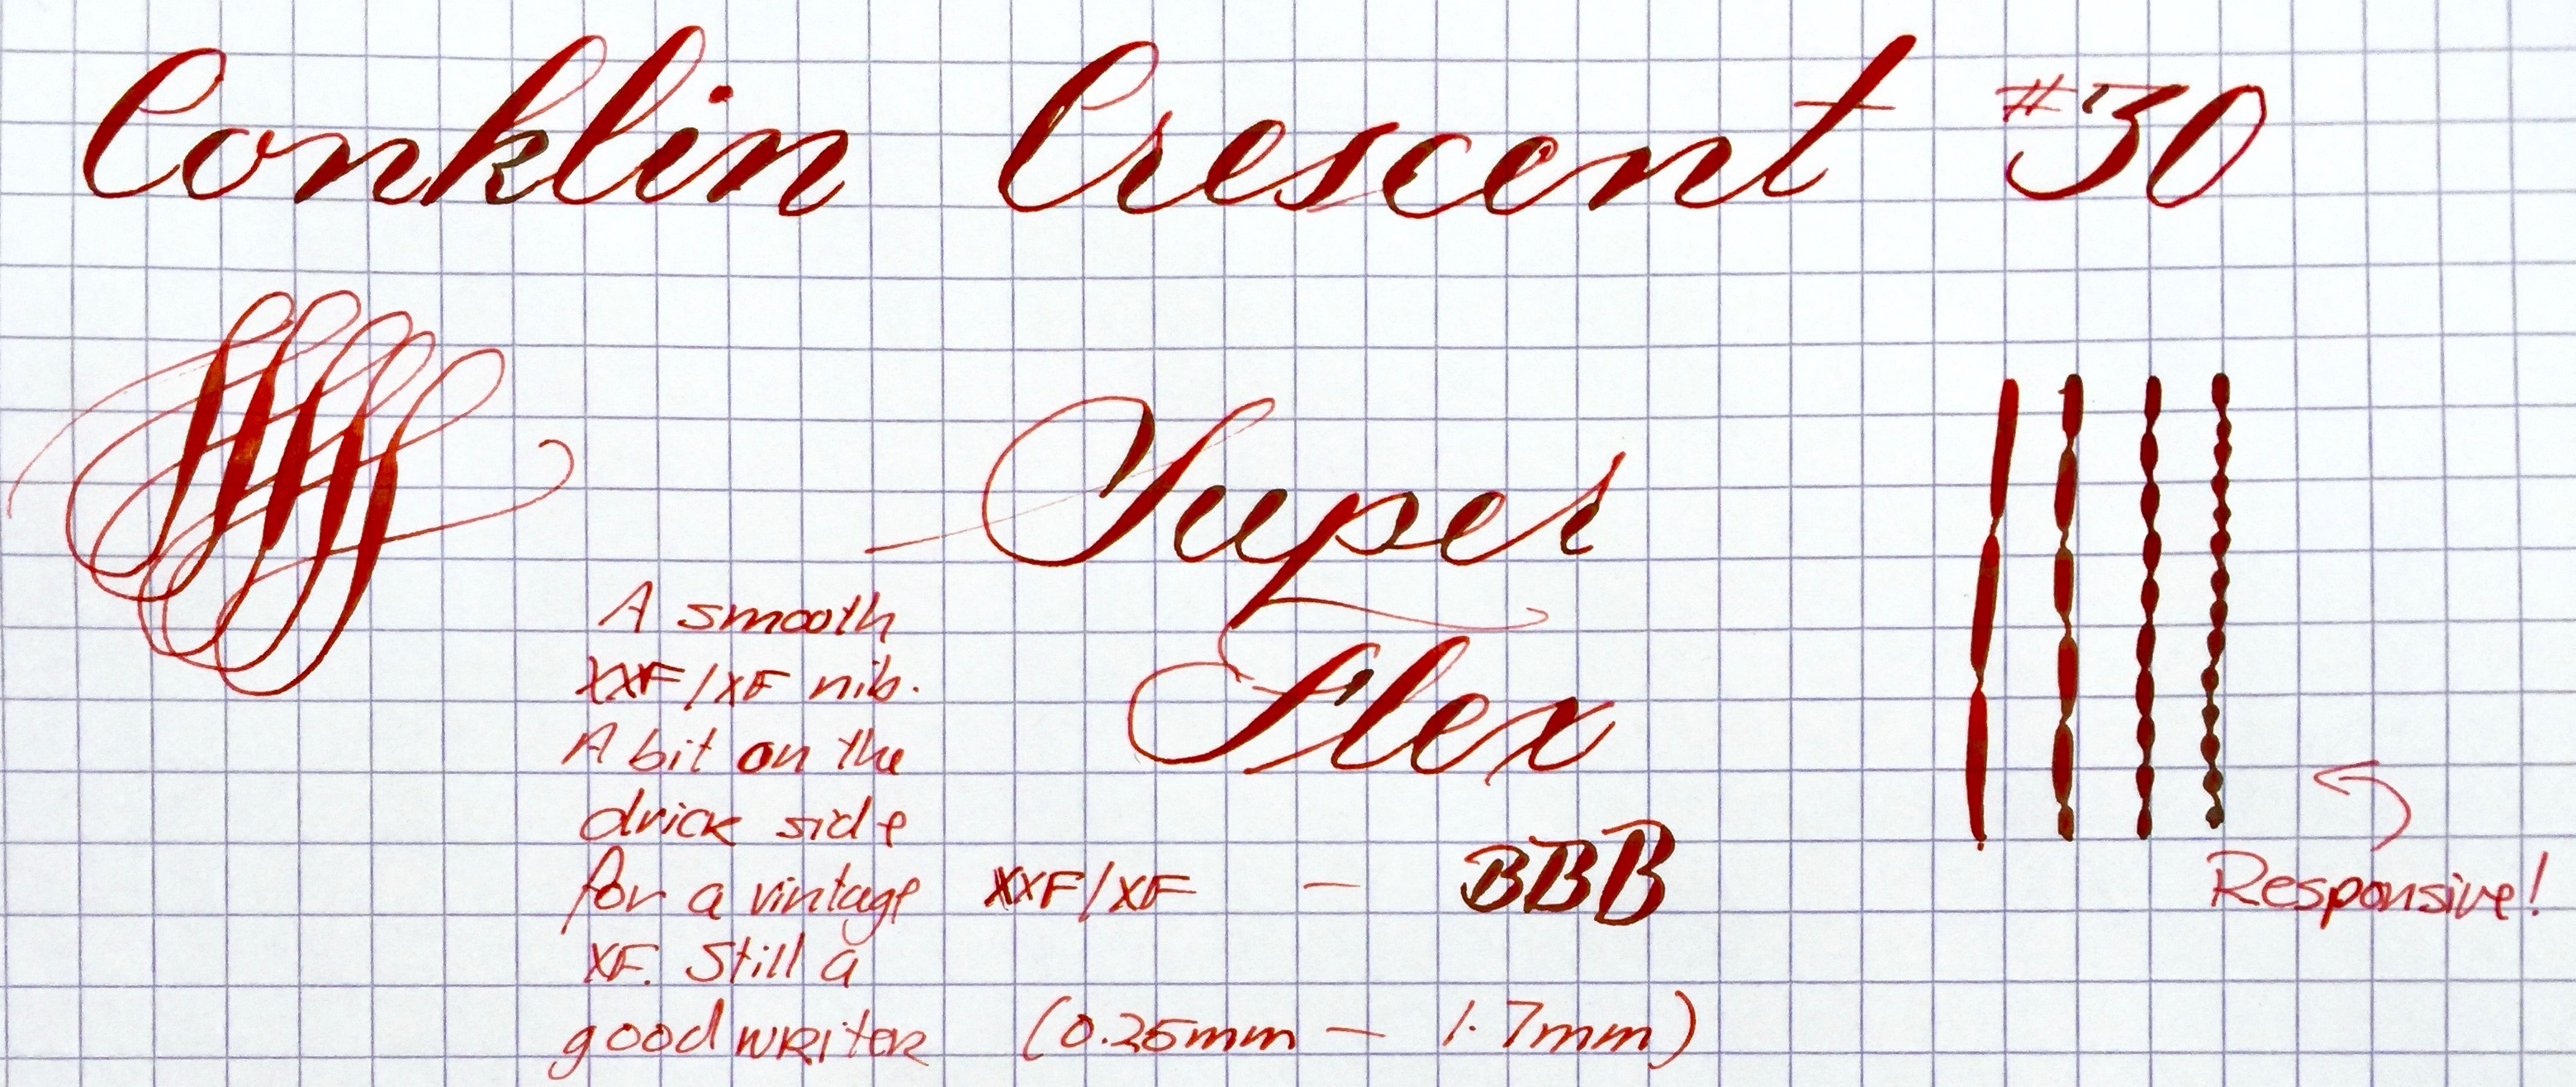 Conklin Crescent #30
Super
Flex
A smooth
XXF/XF nib.
A bit on the
drick side
for a vintage
XF. Still a
good writer
XXF/XF — BBB
(0.25mm — 1.7mm)
Responsive!